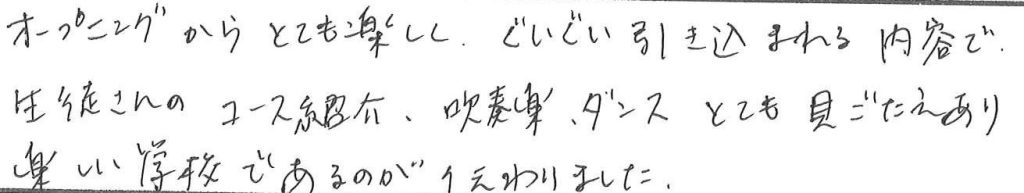 オープニングからとても楽しく、ぐいぐい引き込まれる内容で、
生徒さんのコース紹介、吹奏楽、ダンスとても見ごたえあり
楽しい学校であるのが伝わりました。